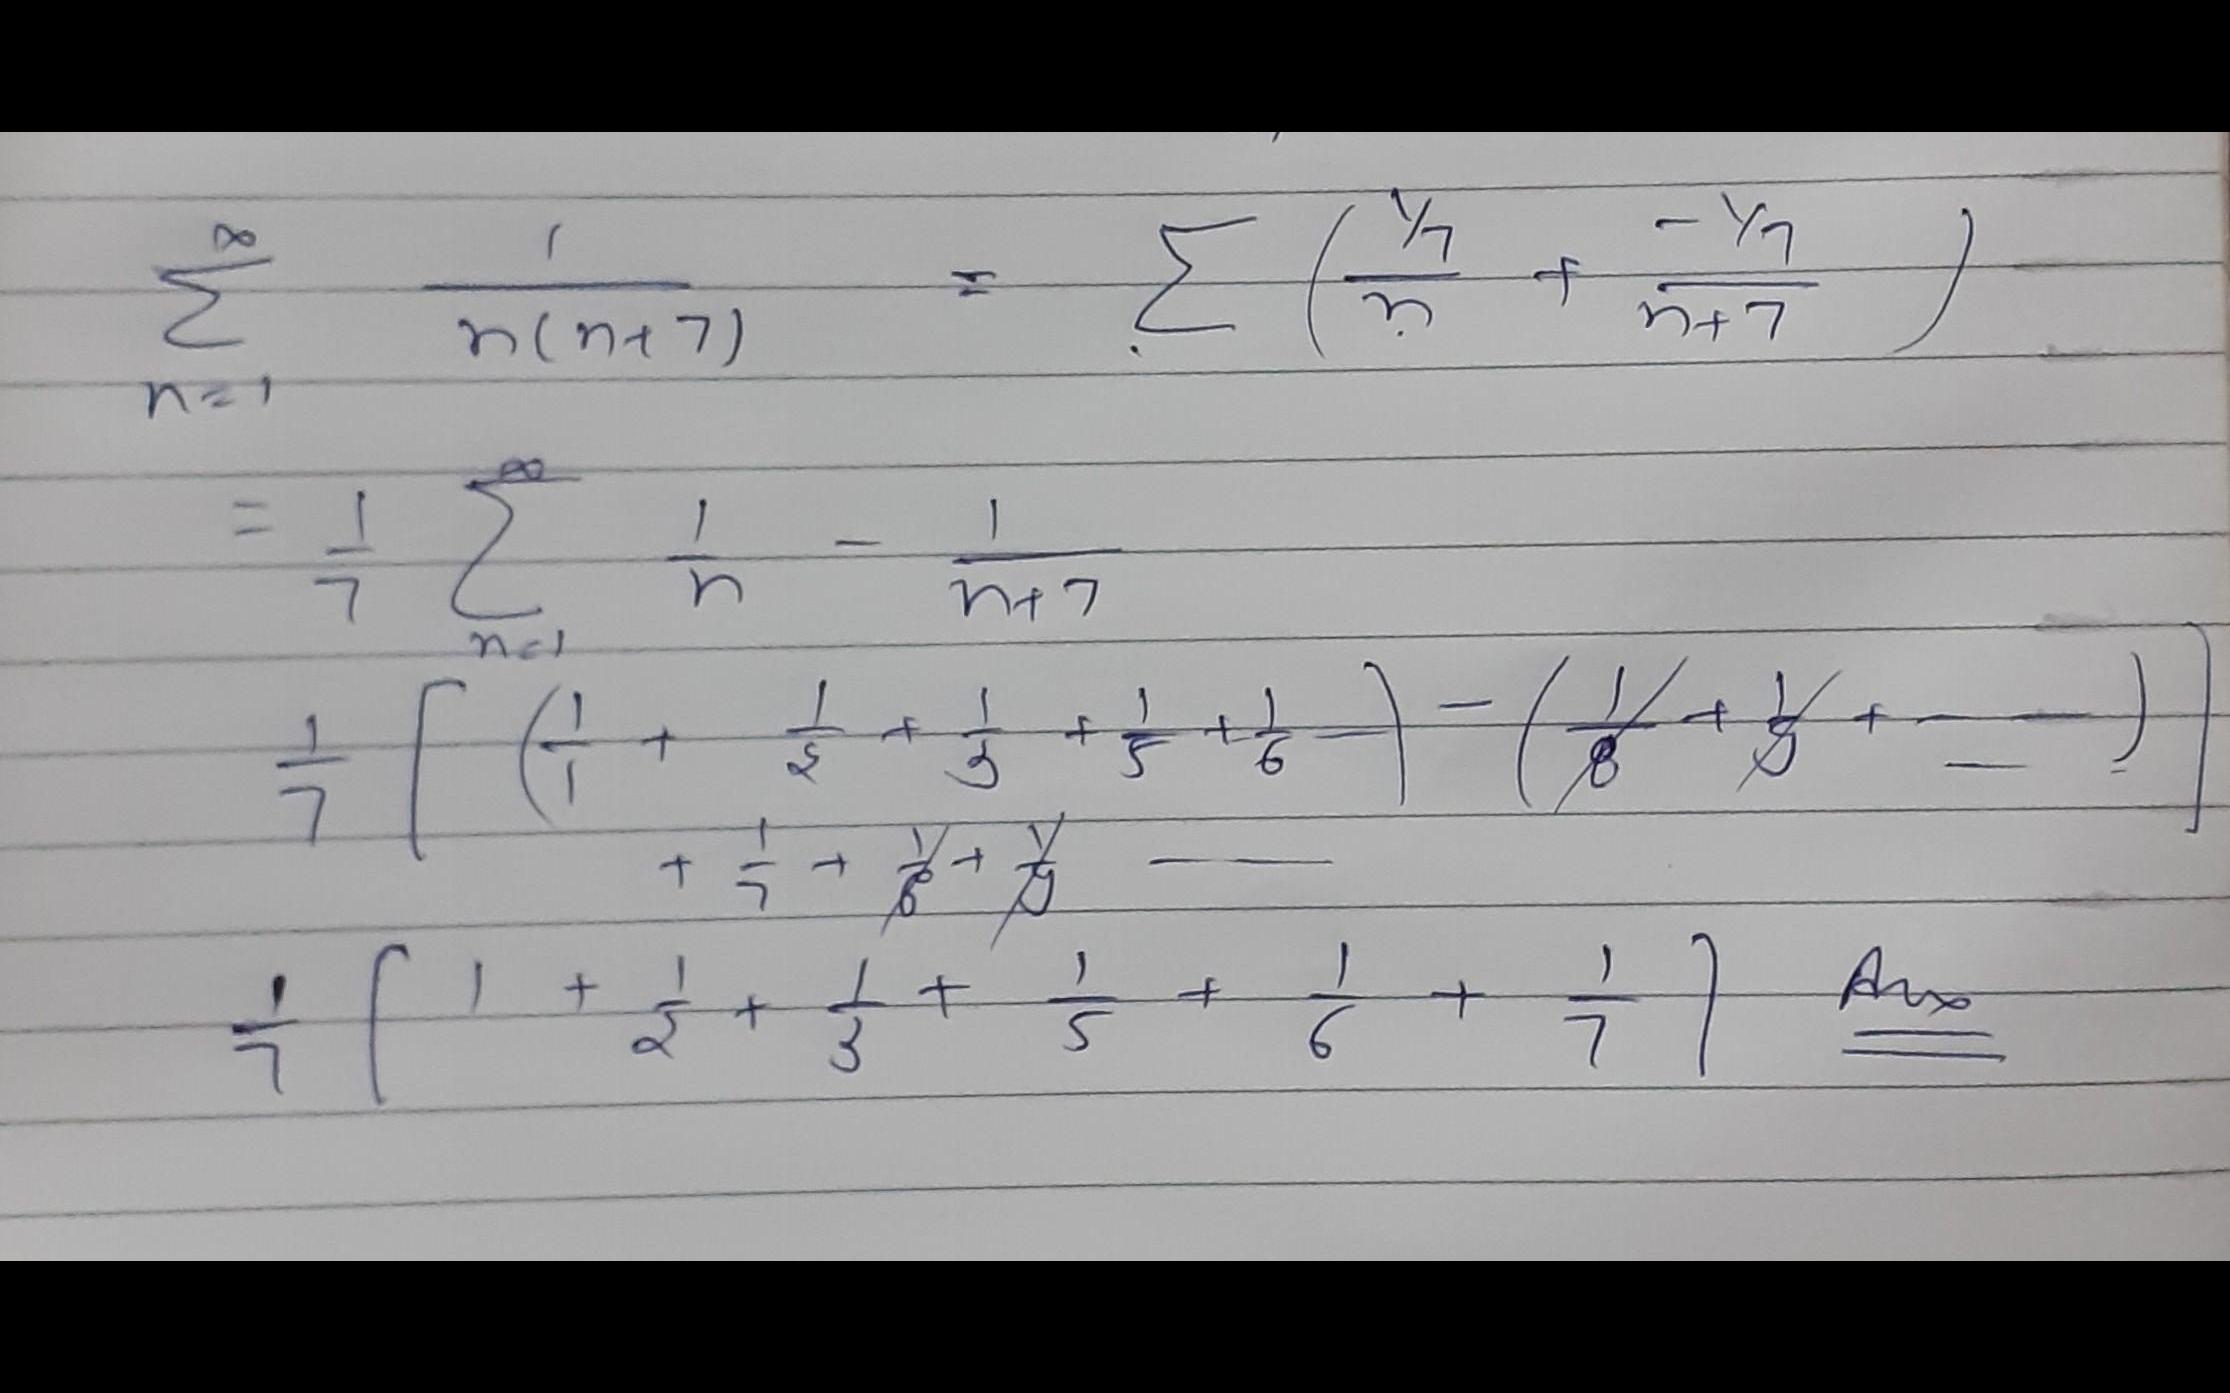 ∑_{n=1}^{∞} 1/(n(n+7)) = ∑ ( (1/7)/n + (-1/7)/(n+7) )
= 1/7 ∑_{n=1}^{∞} 1/n - 1/(n+7)
1/7 [ ( 1/1 + 1/2 + 1/3 + 1/5 + 1/6 — ) - ( 1/8 + 1/9 + — — — - ) ]
+ 1/7 + 1/8 + 1/9 ——
1/7 [ 1 + 1/2 + 1/3 + 1/5 + 1/6 + 1/7 ] Ans